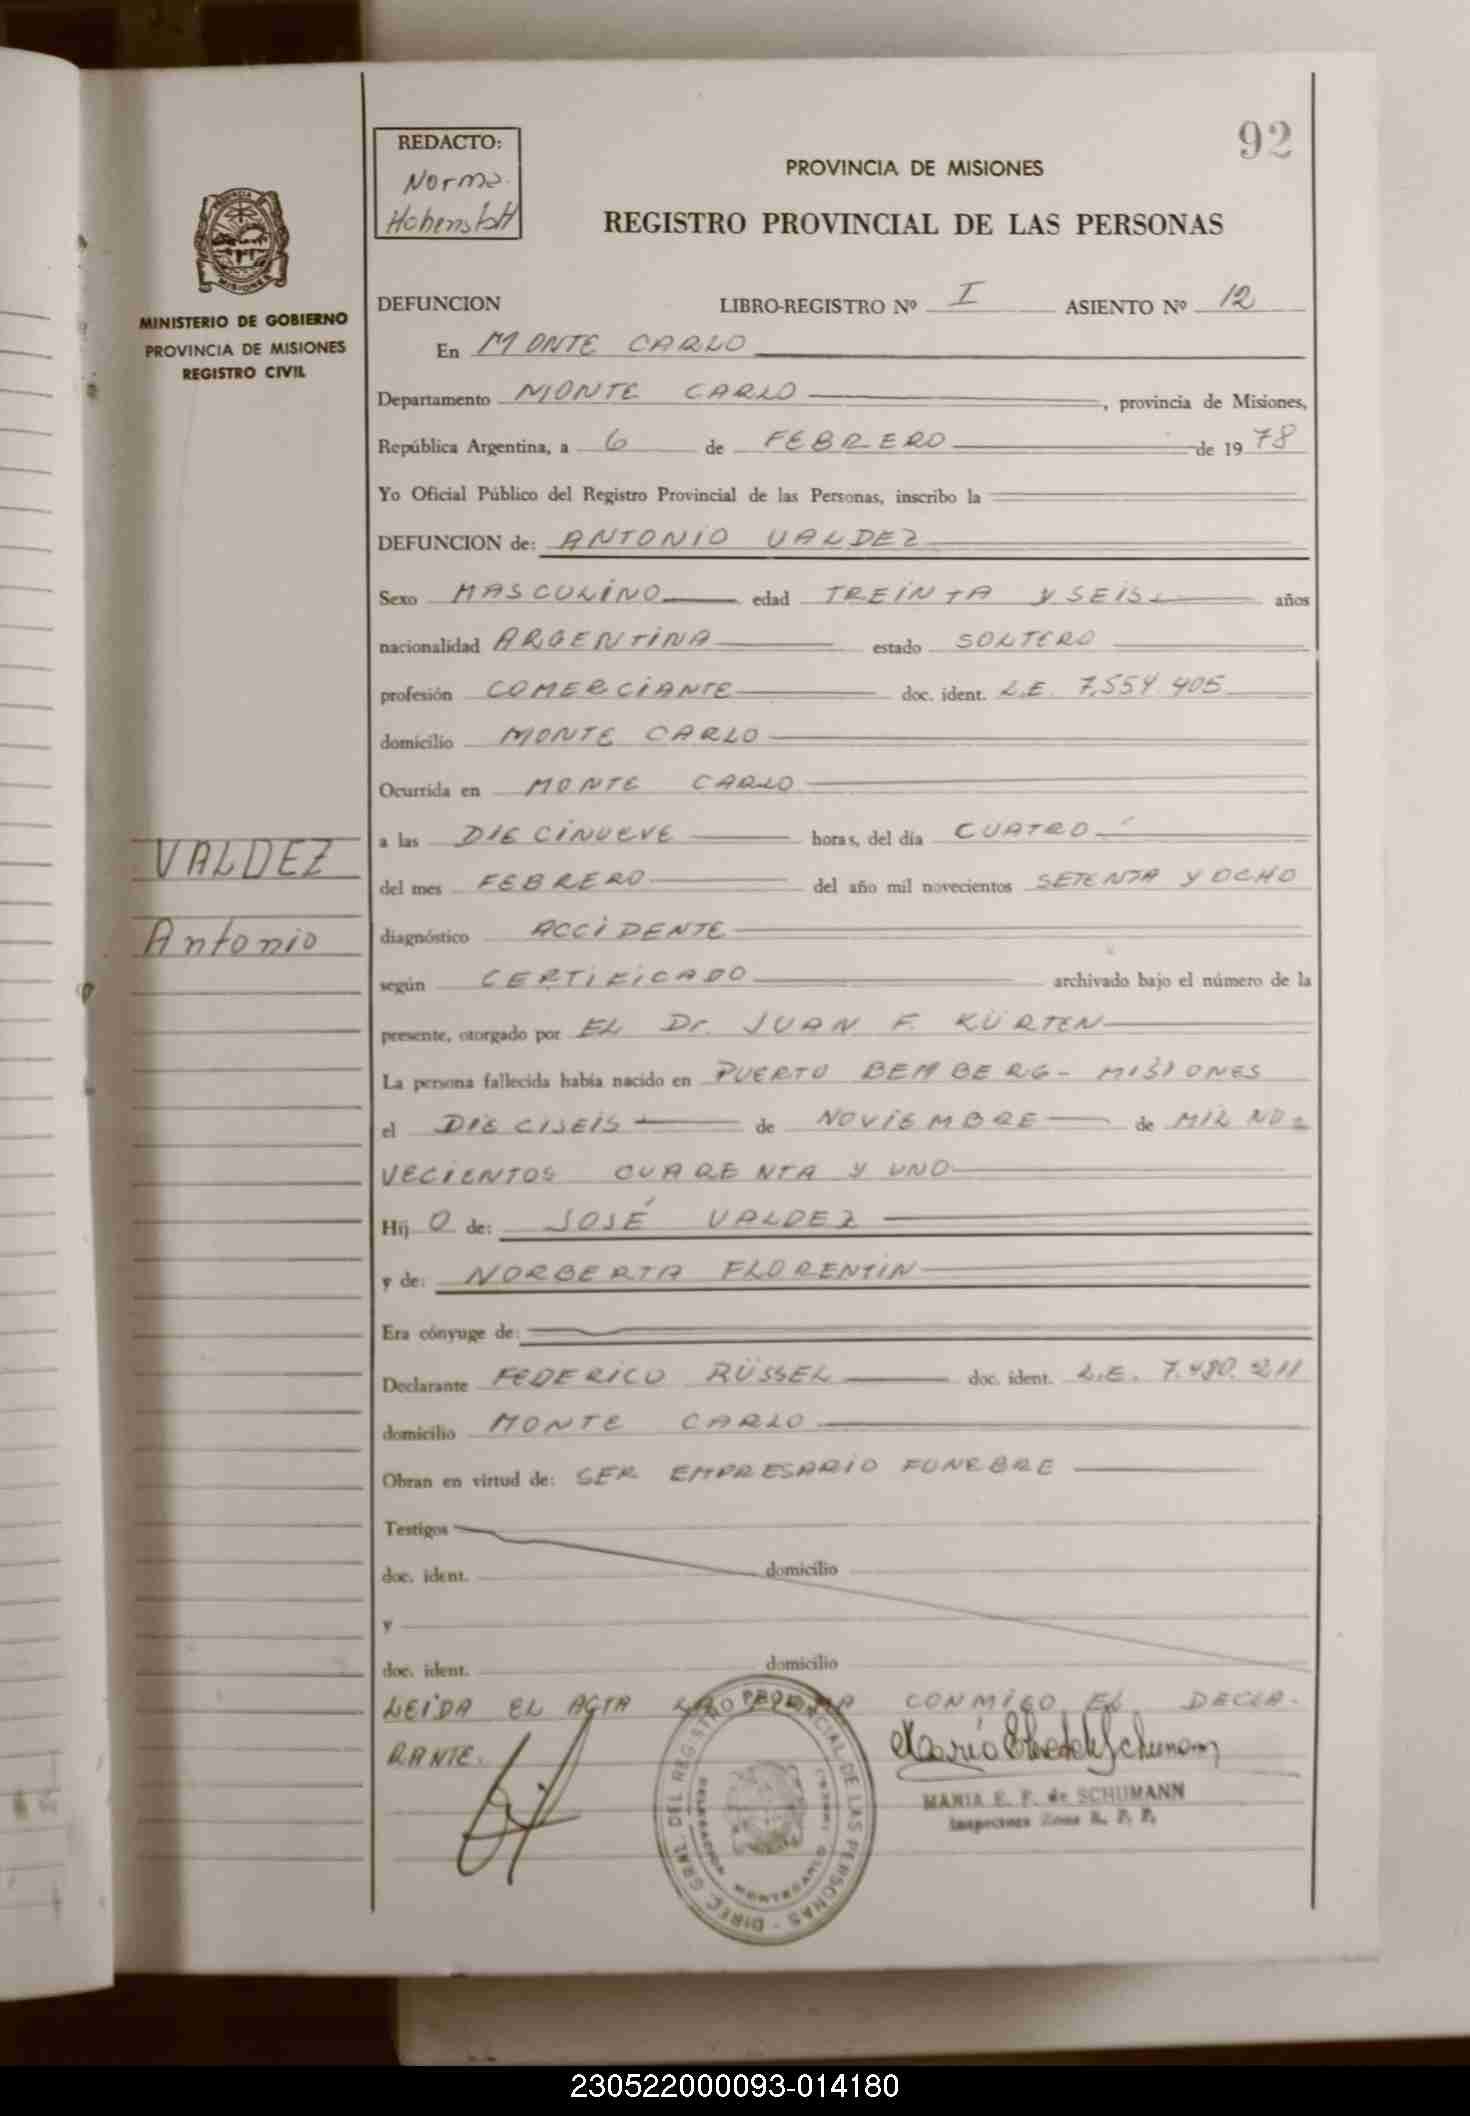 92
REDACTO:
Norma
Hohenstatt
PROVINCIA DE MISIONES
REGISTRO PROVINCIAL DE LAS PERSONAS
MINISTERIO DE GOBIERNO
PROVINCIA DE MISIONES
REGISTRO CIVIL
DEFUNCION LIBRO-REGISTRO Nº I ASIENTO Nº 12
En MONTE CARLO
Departamento MONTE CARLO, provincia de Misiones,
República Argentina, a 6 de FEBRERO de 1978
Yo Oficial Público del Registro Provincial de las Personas, inscribo la
DEFUNCION de: ANTONIO VALDEZ
Sexo MASCULINO edad TREINTA Y SEIS años
nacionalidad ARGENTINA estado SOLTERO
profesión COMERCIANTE doc. ident. L.E. 7.554.405
domicilio MONTE CARLO
Ocurrida en MONTE CARLO
VALDEZ
Antonio
a las DIECINUEVE horas, del día CUATRO
del mes FEBRERO del año mil novecientos SETENTA Y OCHO
diagnóstico ACCIDENTE
según CERTIFICADO archivado bajo el número de la
presente, otorgado por EL Dr. JUAN F. KÜRTEN
La persona fallecida había nacido en PUERTO BEMBERG - MISIONES
el DIECISEIS de NOVIEMBRE de MIL NO=
VECIENTOS CUARENTA Y UNO
Hij O de: JOSÉ VALDEZ
y de: NORBERTA FLORENTIN
Era cónyuge de:
Declarante FEDERICO RÜSSEL doc. ident. L.E. 7.480.211
domicilio MONTE CARLO
Obran en virtud de: SER EMPRESARIO FUNEBRE
Testigos
doc. ident. domicilio
y
doc. ident. domicilio
LEIDA EL ACTA LA FIRMA CONMIGO EL DECLA-
RANTE.
DIREC. GRAL. DEL REGISTRO PROVINCIAL DE LAS PERSONAS
DELEGACION MONTECARLO
MARIA E. F. de SCHUMANN
Inspectora Zona R. P. P.
230522000093-014180